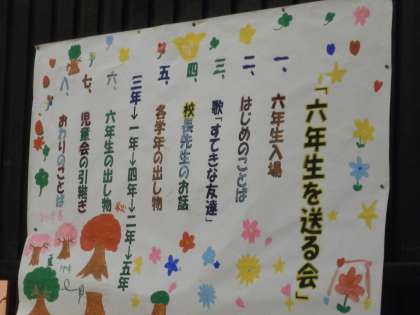 「六年生を送る会」
一、六年生入場
二、はじめのことば
三、歌「すてきな友達」
四、校長先生のお話
五、各学年の出し物
三年→一年→四年→二年→五年
六、六年生の出し物
七、児童会の引継ぎ
八、おわりのことば